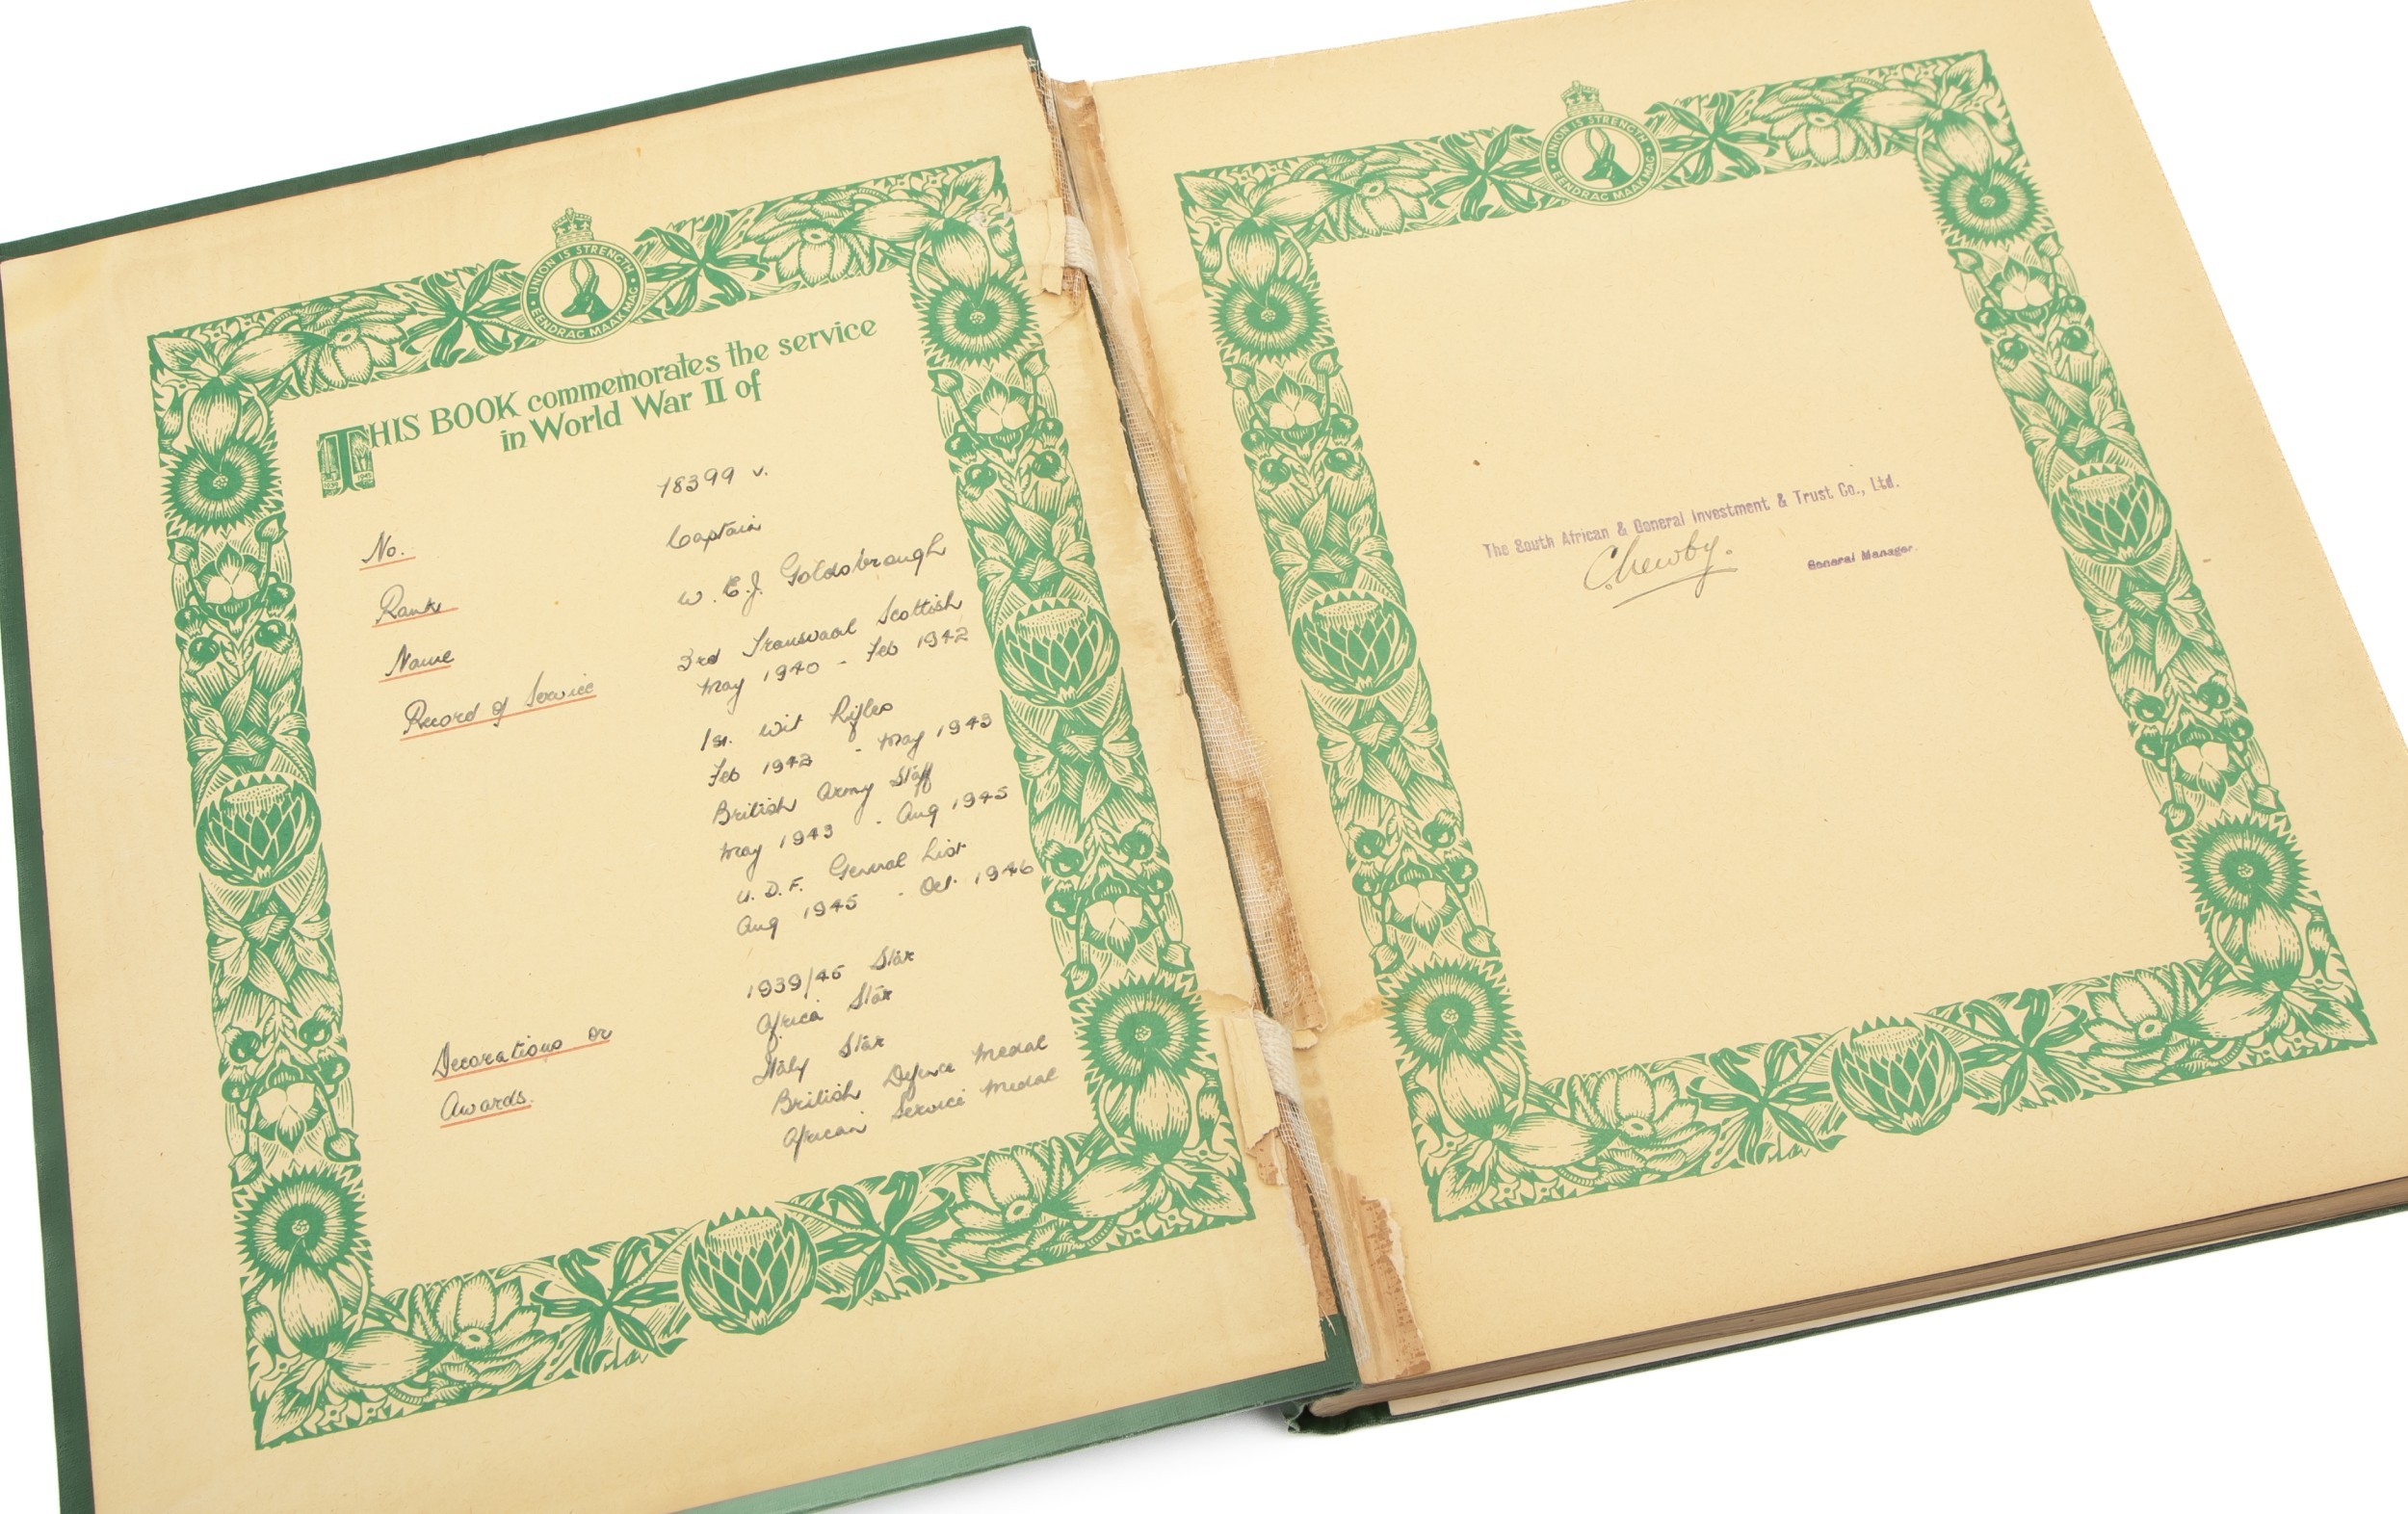 UNION IS STRENGTH
EENDRAG MAAK MAG
THIS BOOK commemorates the service
in World War II of
No. 18399 v.
Rank Captain
Name W. E. J. Goldsbrough
Record of Service 3rd Transvaal Scottish
May 1940 - Feb 1942
1st. Wit Rifles
Feb 1942 - May 1943
British Army Staff
May 1943 - Aug 1945
U.D.F. General List
Aug 1945 - Oct. 1946
Decorations or 1939/45 Star
Awards. Africa Star
Italy Star
British Defence Medal
African Service Medal
UNION IS STRENGTH
EENDRAG MAAK MAG
The South African & General Investment & Trust Co., Ltd.
General Manager.